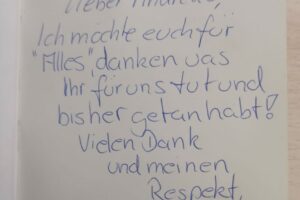 Lieber
Ich möchte euch für
"Alles" danken was
Ihr für uns tut und
bisher getan habt!
Vielen Dank
und meinen
Respekt,